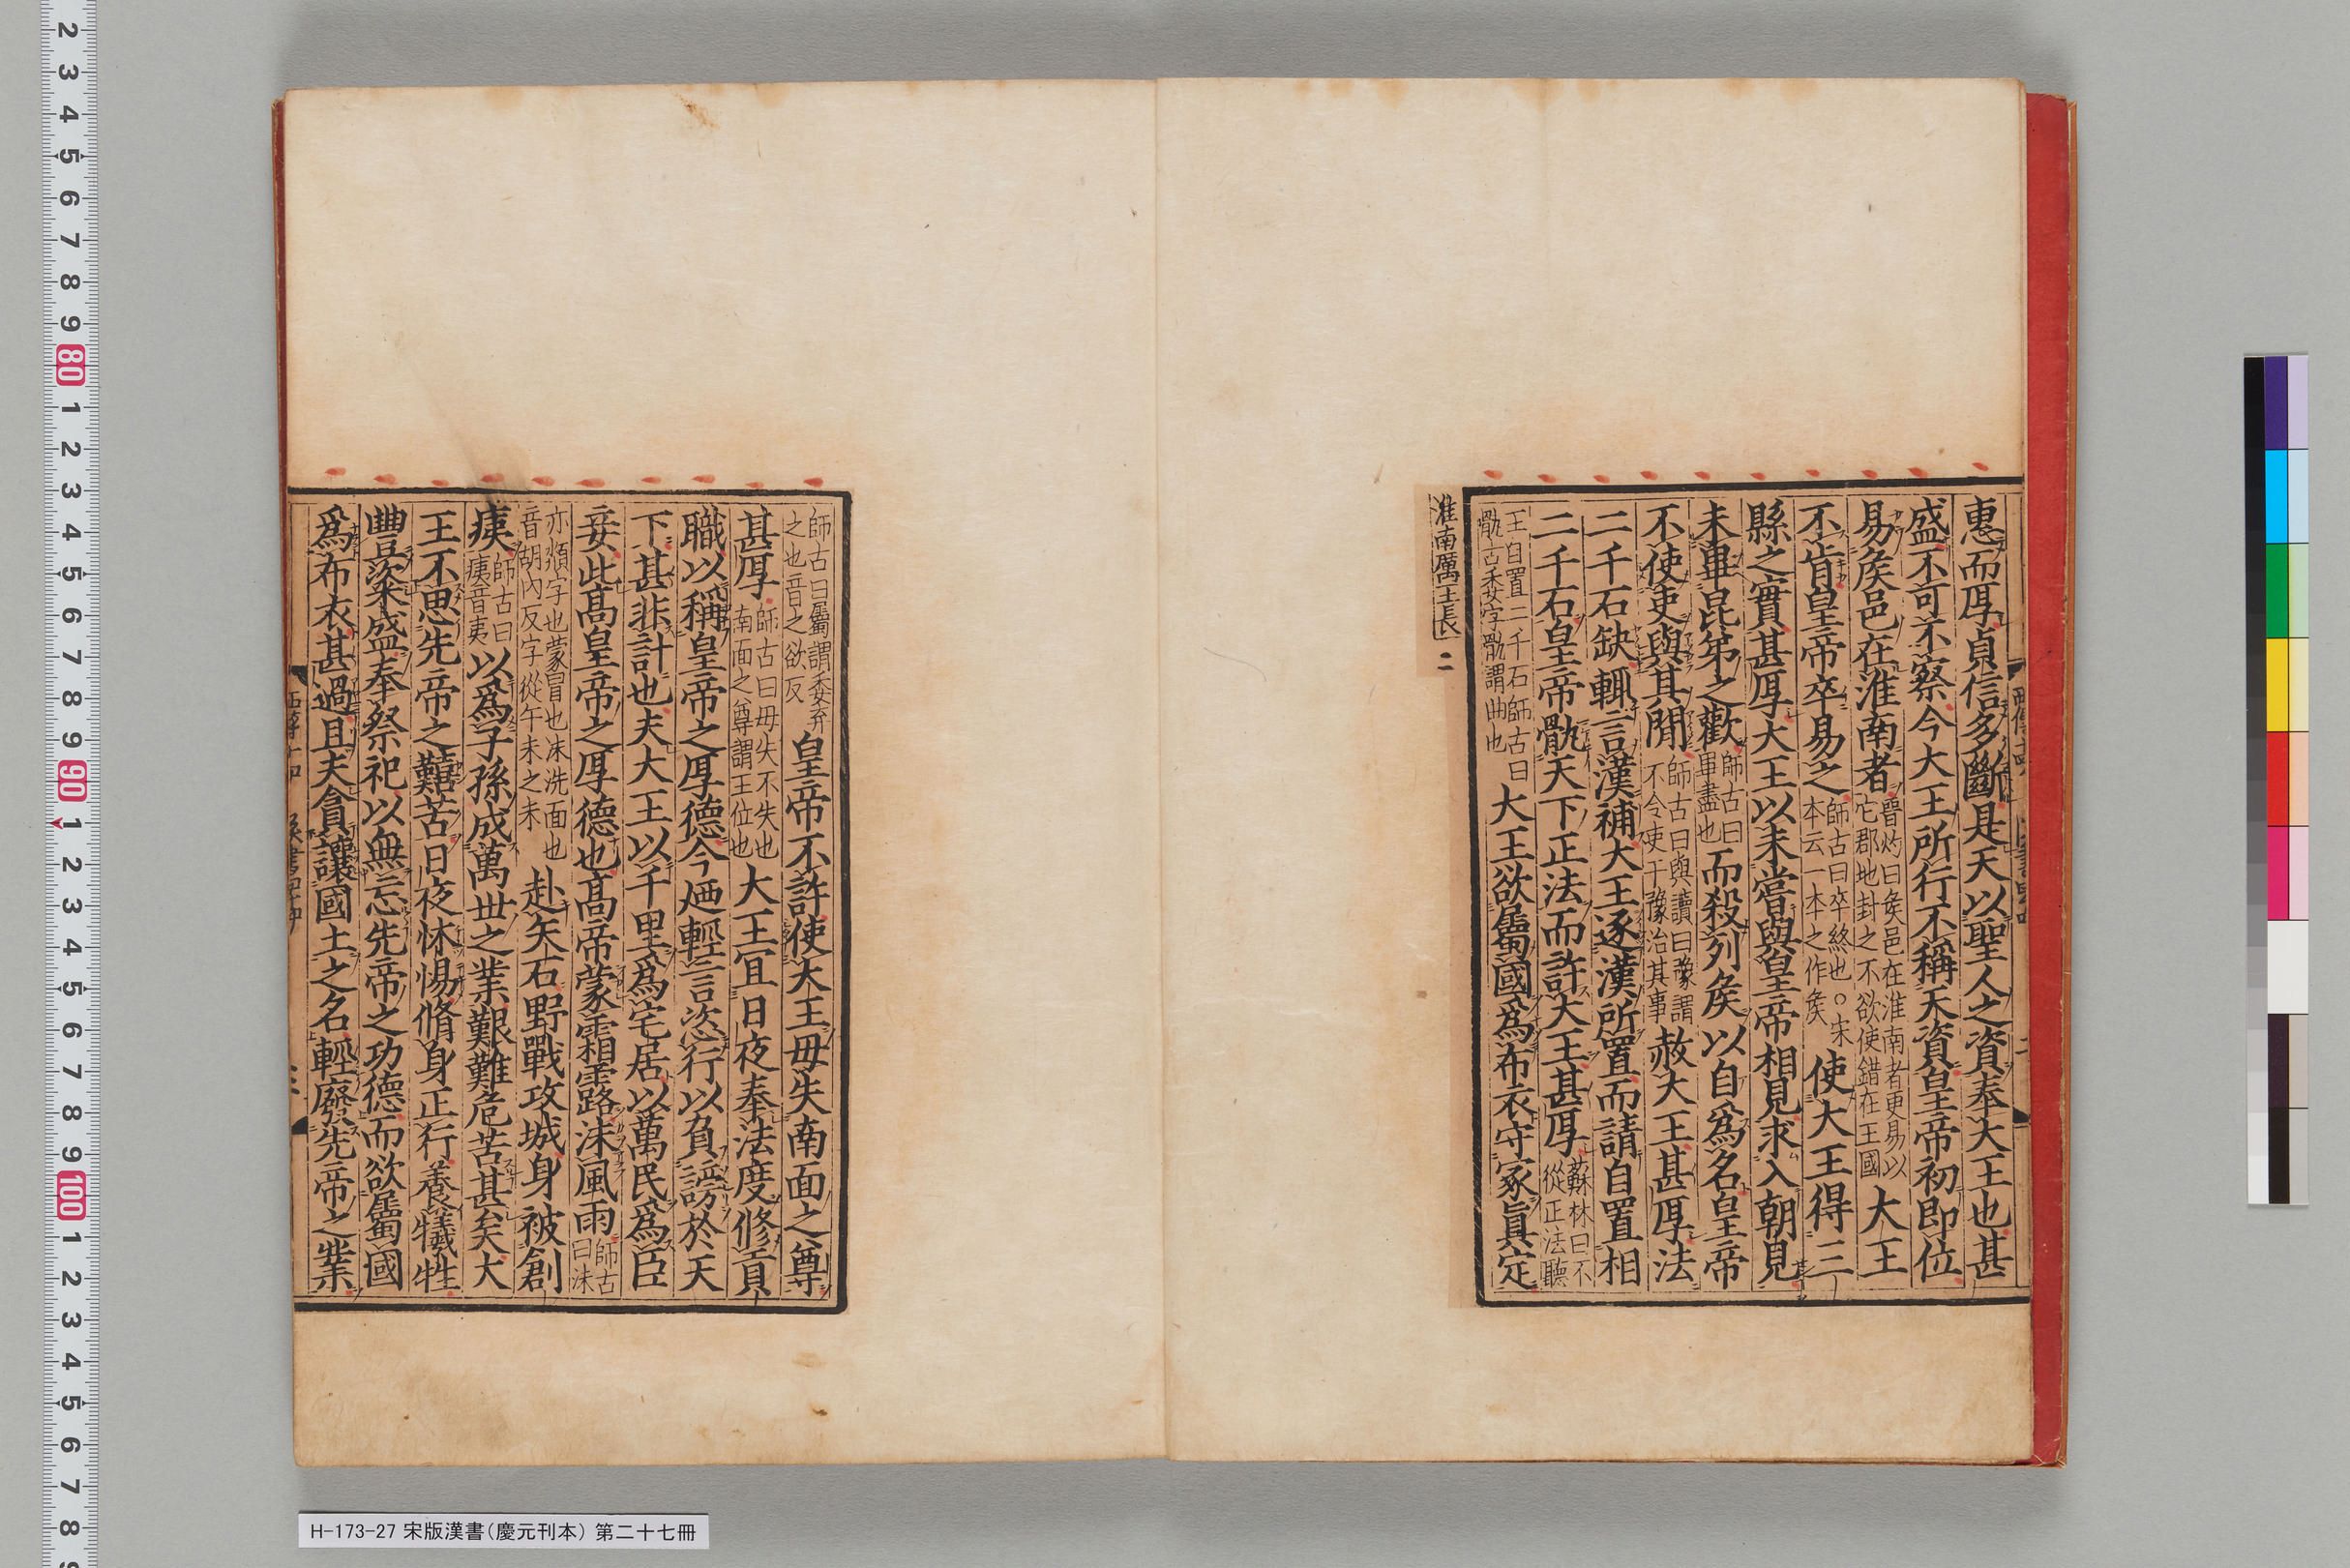 惠而厚貞信多斷是天以聖人之資奉大王也甚
盛不可不察今大王所行不稱天資皇帝初即位
易矦邑在淮南者晉灼曰矦邑在淮南者更易以它郡地封之不欲使錯在王國大王
不肯皇帝卒易之師古曰卒終也○宋本云一本之作矦使大王得三
縣之實甚厚大王以未嘗與皇帝相見求入朝見
未畢昆弟之歡師古曰畢盡也而殺列矦以自爲名皇帝
不使吏與其閒師古曰與讀曰豫謂不令吏干豫治其事赦大王甚厚法
二千石缺輒言漢補大王逐漢所置而請自置相
二千石皇帝骫天下正法而許大王甚厚蘇林曰不從正法聽
王自置二千石師古曰骫古委字骫謂曲也大王欲屬國爲布衣守冢眞定
淮南厲王長 二
師古曰屬謂委弃之也音之欲反皇帝不許使大王毋失南面之尊
甚厚師古曰毋失不失也南面之尊謂王位也大王宜日夜奉法度修貢
職以稱皇帝之厚德今廼輕言恣行以負謗於天
下甚非計也夫大王以千里爲宅居以萬民爲臣
妾此髙皇帝之厚德也髙帝蒙霜露沬風雨師古曰沬
亦頮字也蒙冒也沬洗面也音胡內反字從午未之未赴矢石野戰攻城身被創
痍師古曰痍音夷以爲子孫成萬丗之業艱難危苦甚矣大
王不思先帝之艱苦日夜怵惕脩身正行養犧牲
豐粢盛奉祭祀以無忘先帝之功德而欲屬國
爲布衣甚過且夫貪讓國土之名輕廢先帝之業
2
3
4
5
6
7
8
9
80
1
2
3
4
5
6
7
8
9
90
1
2
3
4
5
6
7
8
9
100
1
2
3
4
5
6
7
8
H-173-27 宋版漢書(慶元刊本) 第二十七冊